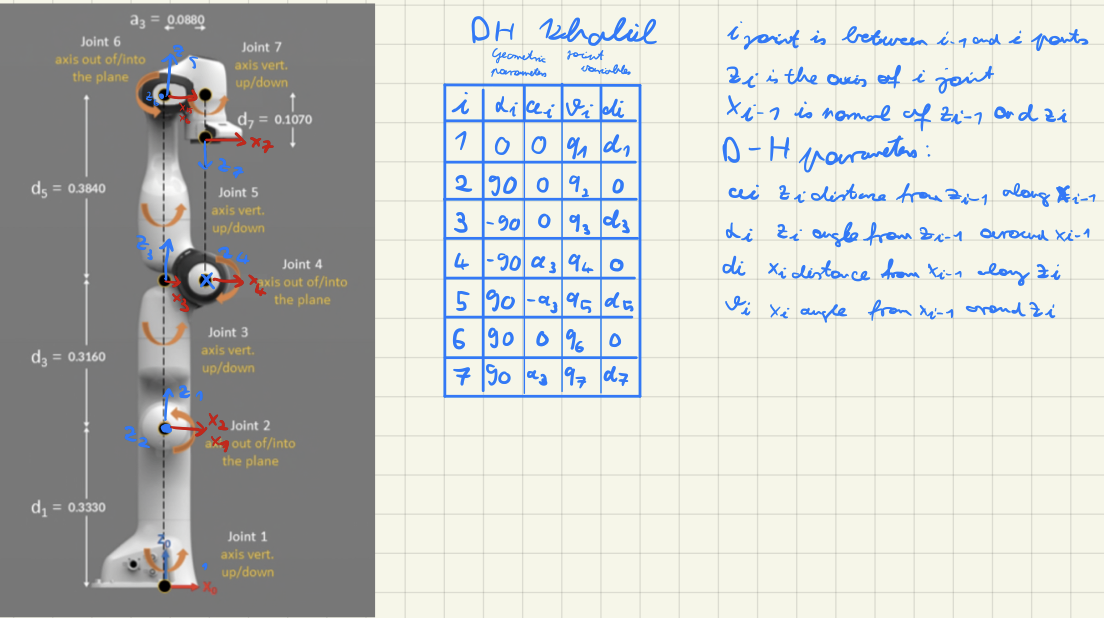 a₃ = 0.0880
Joint 6
axis out of/into
the plane
Joint 7
axis vert.
up/down
d₇ = 0.1070
x₇
z₇
d₅ = 0.3840
Joint 5
axis vert.
up/down
z₃
z₄
x₃
x₄
Joint 4
axis out of/into
the plane
Joint 3
axis vert.
up/down
d₃ = 0.3160
z₁
z₂
x₂
x₁
Joint 2
axis out of/into
the plane
d₁ = 0.3330
Joint 1
axis vert.
up/down
z₀
x₀
DH Khalil
geometric parameters
joint variables
i αi ai ϑi di
1 0 0 q₁ d₁
2 90 0 q₂ 0
3 -90 0 q₃ d₃
4 -90 a₃ q₄ 0
5 90 -a₃ q₅ d₅
6 90 0 q₆ 0
7 90 a₃ q₇ d₇
i joint is between i-1 and i parts
zi is the axis of i joint
xi-1 is normal of zi-1 and zi
D-H parameters:
ai zi distance from zi-1 along xi-1
αi zi angle from zi-1 around xi-1
di xi distance from xi-1 along zi
ϑi xi angle from xi-1 around zi